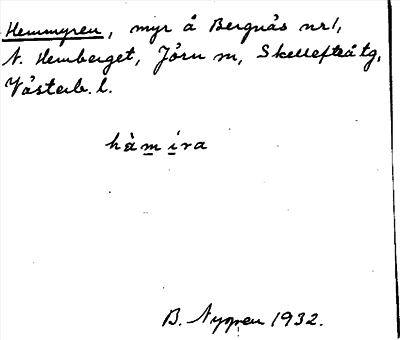 Hemmyren, myr å Bergnäs nr 1,
N. Hemberget, Jörn m, Skellefteå tg,
Västerb. l.
hàmíra
B. Nygren 1932.